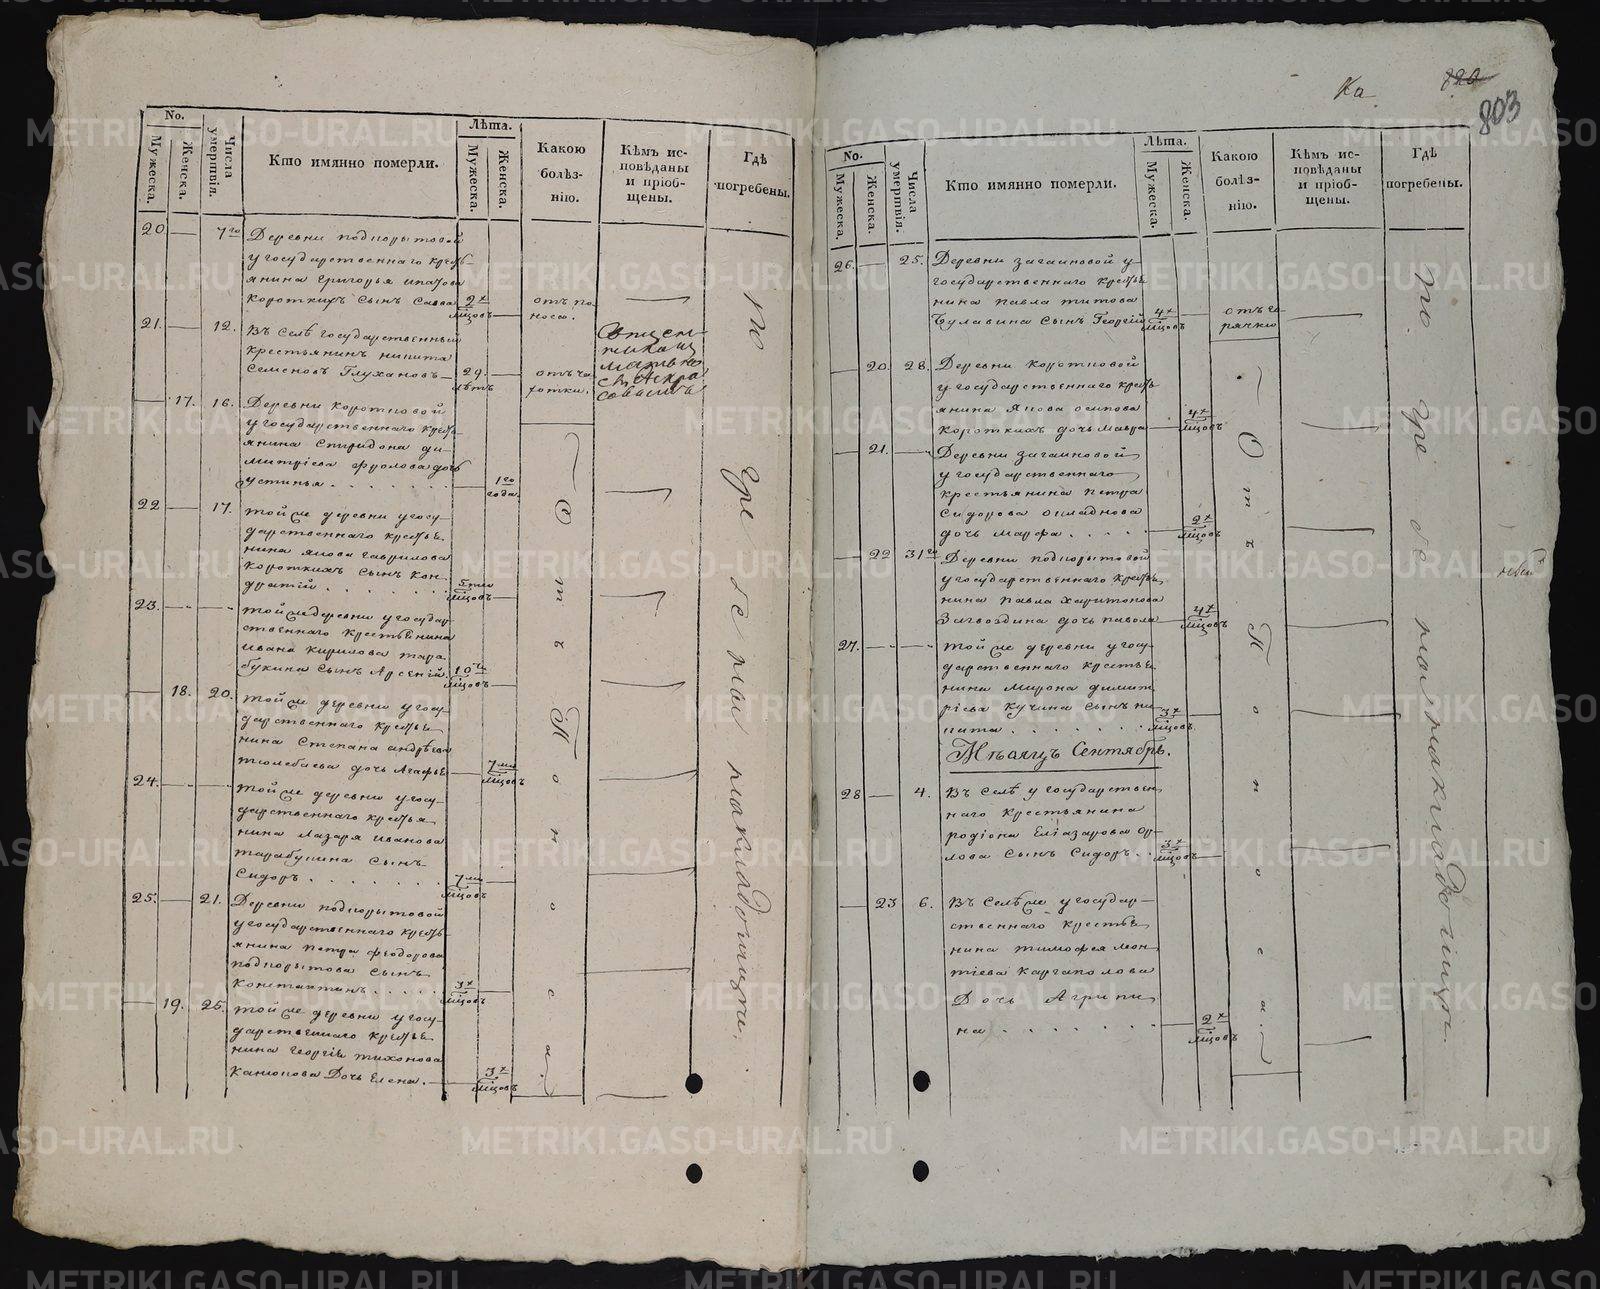 Ка
820
803
No.
Мужеска.
Женска.
Числа умертвія.
Кто имянно померли.
Лѣта.
Мужеска.
Женска.
Какою
болѣз-
нію.
Кѣмъ ис-
повѣданы
и пріоб-
щены.
Гдѣ
погребены.
20 — 7го Деревни
у государственнаго кресть
янина Григорья
Короткихъ сынъ Савва 2х мѣсцовъ
отъ по
носа.
21. — 12. Въ Селѣ государственный
крестьянинъ никита
Семеновъ Глухановъ — 29. лѣтъ
отъ ча
хотки.
— 17. 16. Деревни Коротковой
у государственнаго кресть
янина Спиридона ди-
митріева Фролова дочь
устинья . . . . . . 1го года
22 — 17. той же деревни у госу-
дарственнаго крестья
нина якова гаврилова
Короткихъ сынъ Кон-
дратій . . . . . . 5ти мѣсцовъ
23. — той же деревни у государ
ственнаго крестьянина
ивана кирилова тара
букина сынъ Арсеній. 10ти мѣсцовъ
— 18. 20. той же деревни у госу-
дарственнаго крестья
нина Степана андрѣева
тюлебаева дочь Агафья 7ми мѣсцовъ
24. — той же деревни у госу-
дарственнаго крестья
нина Лазаря иванова
тарабукина сынъ
Сидоръ . . . . . . 7ми мѣсцовъ
25. — 21. Деревни подкорытовой
у государственнаго кресть
янина петра феодорова
подкорытова сынъ
Константинъ . . . . . 3х мѣсцовъ
— 19. 25. той же деревни у госу-
дарственнаго крестья
нина Георгія тихонова
Канюкова Дочь Елена. 3х мѣсцовъ
Отъ Поноса.
на кладбищи.
No.
Мужеска.
Женска.
Числа умертвія.
Кто имянно померли.
Лѣта.
Мужеска.
Женска.
Какою
болѣз-
нію.
Кѣмъ ис-
повѣданы
и пріоб-
щены.
Гдѣ
погребены.
26. — 25. Деревни загайновой у
государственнаго крестья
нина павла титова
Булавина сынъ Георгій 4х мѣсцовъ
отъ го
рячки
— 20. 28. Деревни Коротковой
у государственнаго кресть
янина якова осипова
Короткихъ дочь мавра — 4х мѣсцовъ
— 21. Деревни загайновой
у государственнаго
крестьянина петра
Сидорова
дочь марфа . . . . 2х мѣсцовъ
— 22 31го Деревни подкорытовой
у государственнаго крестья
нина павла харитонова
Загвоздина дочь павола 4х мѣсцовъ
27. — той же деревни у госу-
дарственнаго крестья
нина мирона димит
ріева Кучина сынъ ни
кита . . . . . . 3х мѣсцовъ
Мѣсяцъ Сентябрь.
28 — 4. Въ Селѣ у государствен
наго крестьянина
родіона Еліазарова ор-
лова сынъ Сидоръ . . 3х мѣсцовъ
— 23 6. Въ Селѣ же у государ-
ственнаго крестья
нина тимофея леон
тіева каргаполова
Дочь Агрипи
на . . . . . . 2х мѣсцовъ
Отъ Поноса.
на кладбищи.